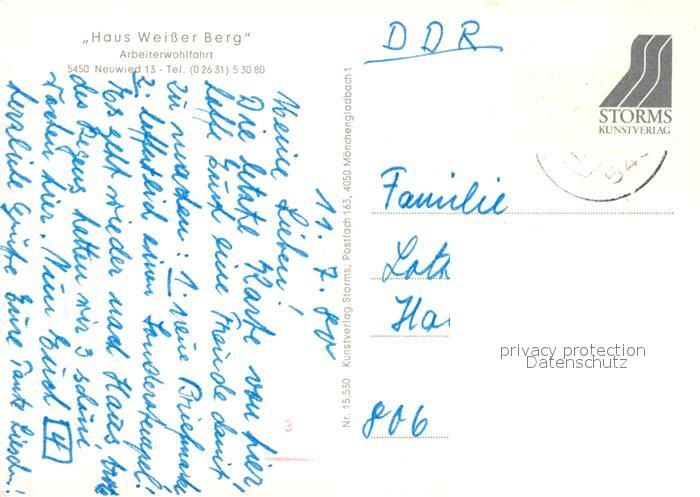 „Haus Weißer Berg"
Arbeiterwohlfahrt
5450 Neuwied 13 - Tel. (0 26 31) 5 30 80
11. 7. 80
Meine Lieben!
Die letzte Karte von hier,
hoffe Euch eine Freude damit
zu machen: 1. neue Briefmarke
2. hoffentlich einen Sonderstempel!
Es geht wieder nach Haus, trotz
des Regens hatten wir 3 schöne
Wochen hier. Nun Euch 4
herzliche Grüße Eure Tante Lieschen!
Nr. 15.530 Kunstverlag Storms, Postfach 163, 4050 Mönchengladbach 1
3
DDR
STORMS
KUNSTVERLAG
54
Familie
Loth
Ha
806
privacy protection
Datenschutz